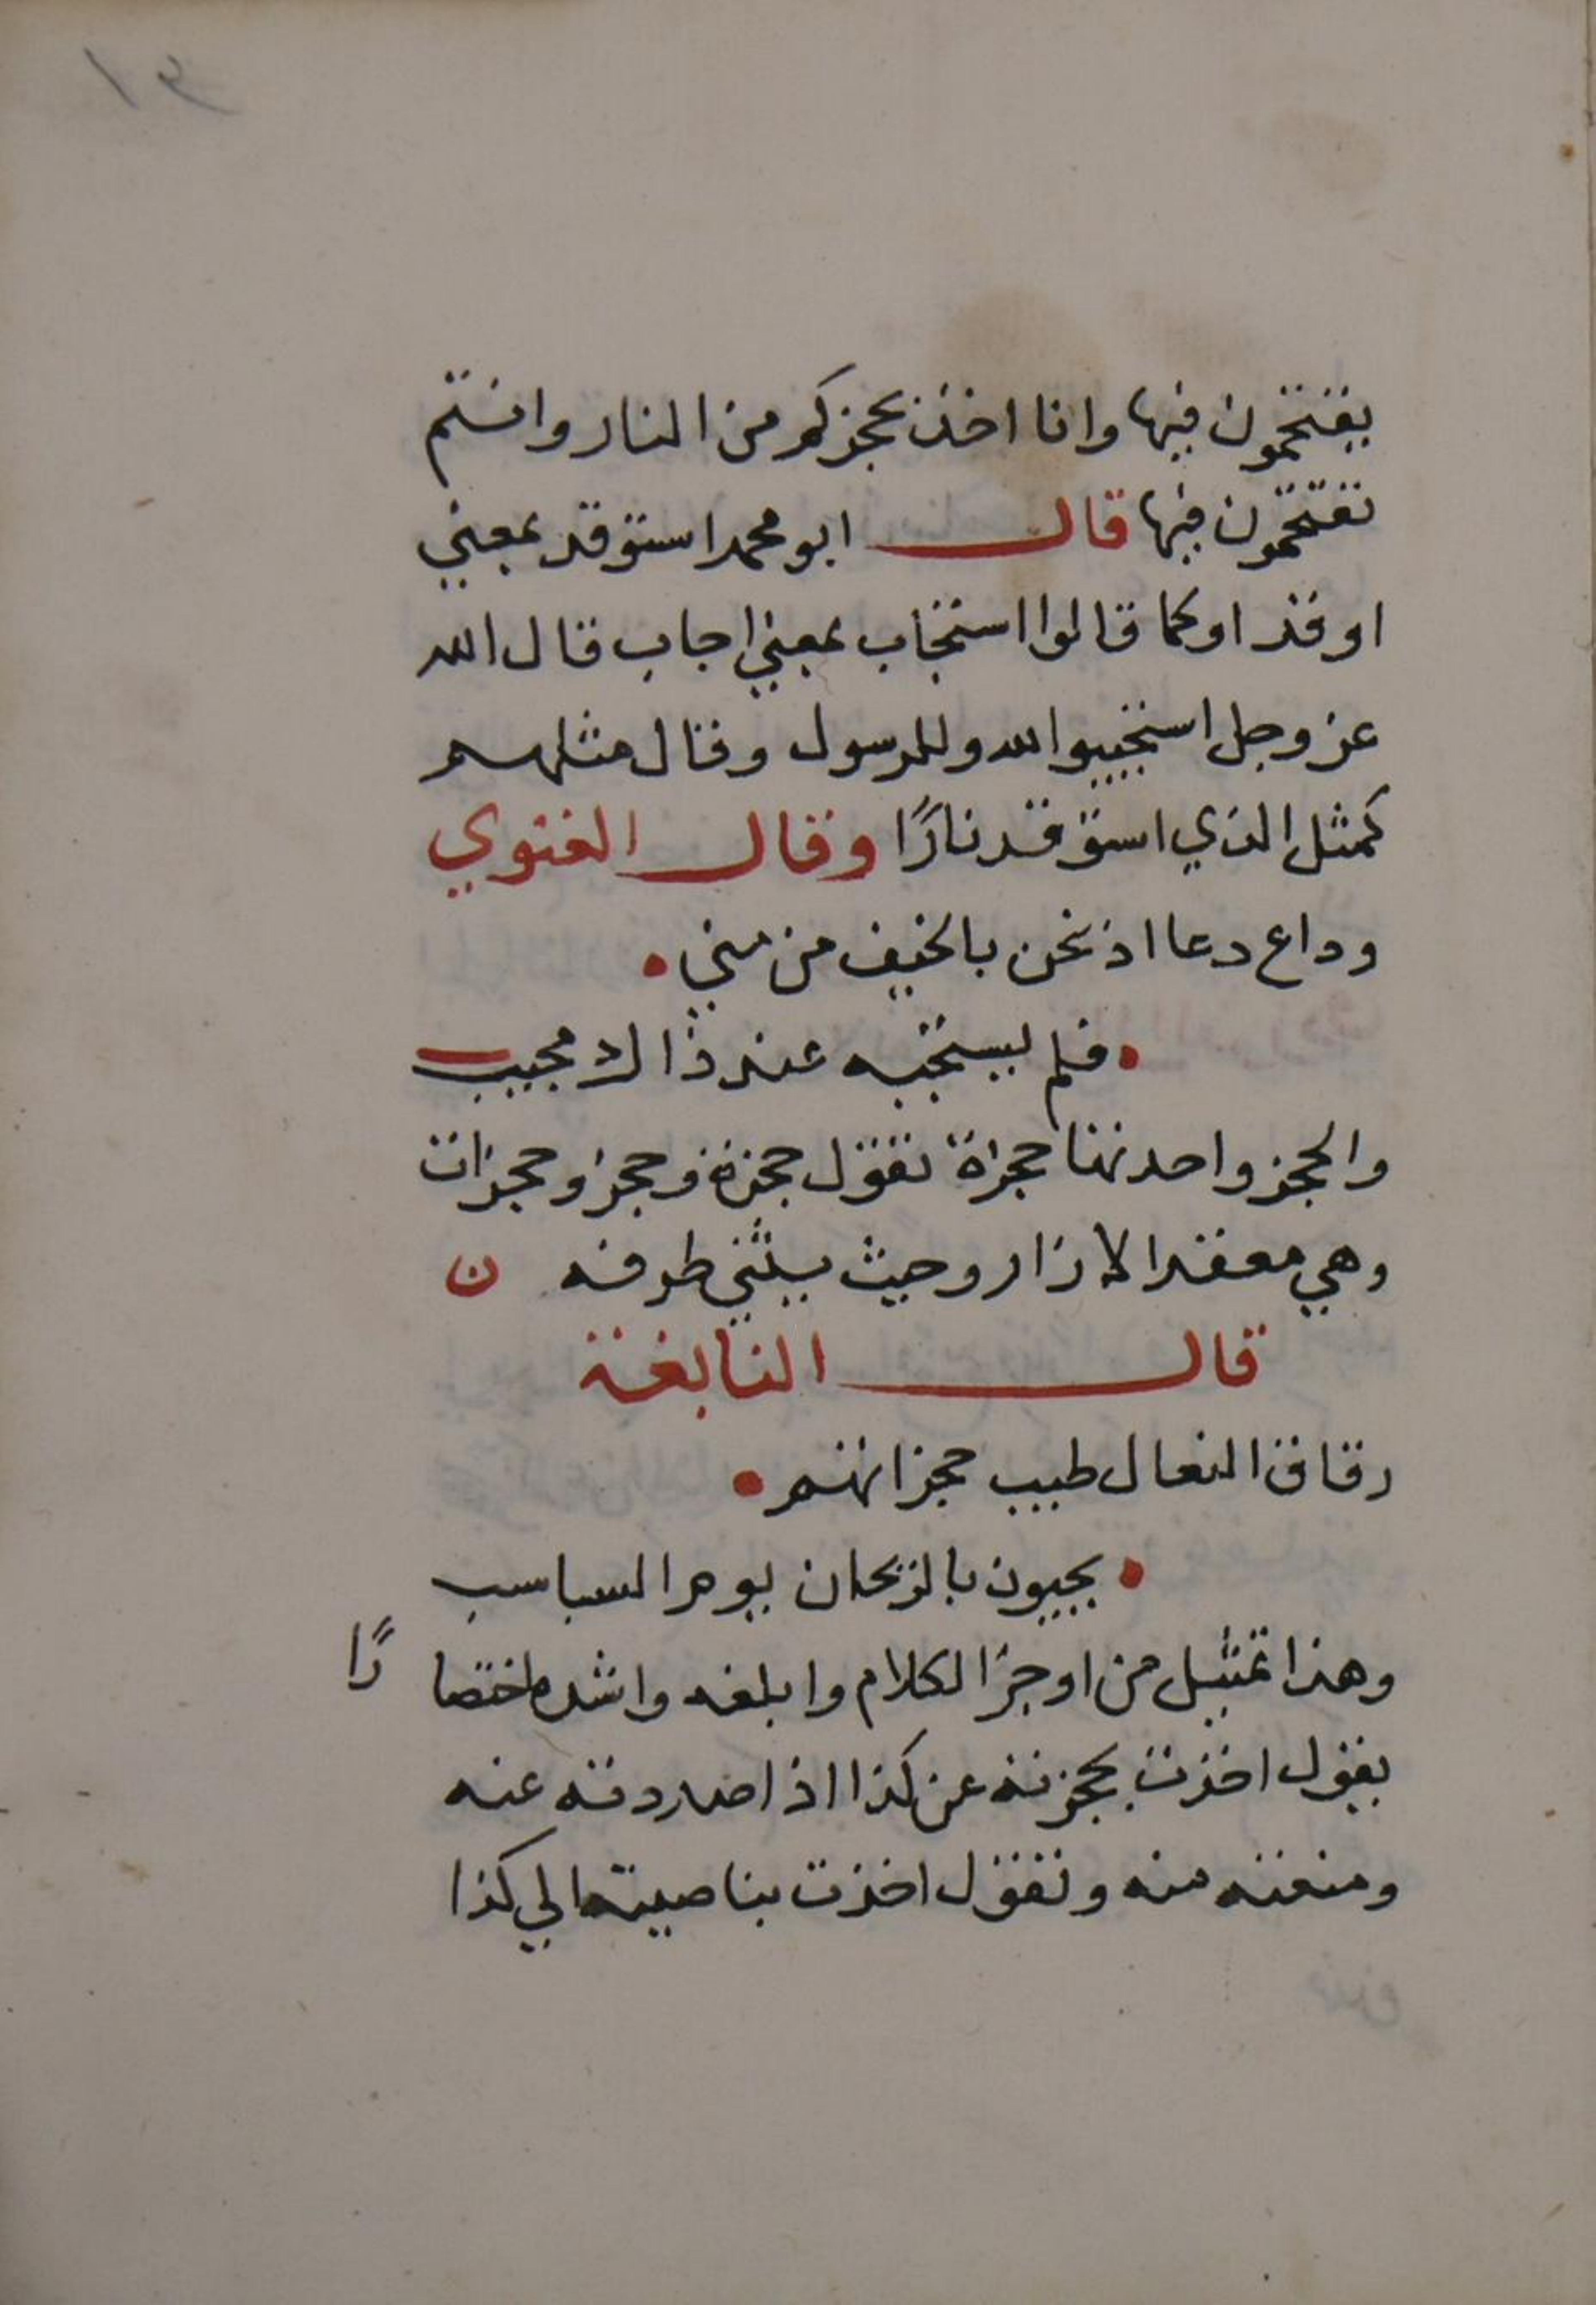 يقتحمون فيها وانا اخذ بحجزكم من النار وانتم
تقتحمون فيها قال ابو محمد استوقد بمعني
اوقد او كما قالوا استجاب بمعني اجاب قال الله
عز وجل استجيبوا لله وللرسول وقال مثلهم
كمثل الذي استوقد نارًا وقال الغنوي
وداع دعا اذ نحن بالخيف من مني •
• فلم يستجبه عند ذاك مجيب
والحجز واحدتها حجزة تقول حجزة وحجز وحجزات
وهي معقد الازار وحيث يثني طرفه ن
قال النابغة
رقاق النعال طيب حجزاتهم •
• يحيون بالريحان يوم السباسب
وهذا تمثيل من اوجز الكلام وابلغه واشده اختصارًا
يقول اخذت بحجزته عن كذا اذا صددته عنه
ومنعته منه وتقول اخذت بناصيته الي كذا